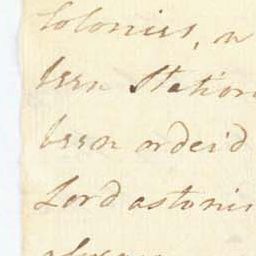 Colonies, w
been Station
been orderd
Lord astonis
always